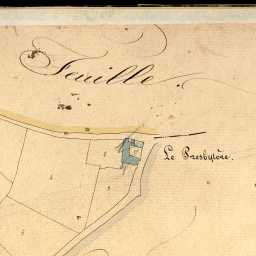 Feuille
Le Presbytère.